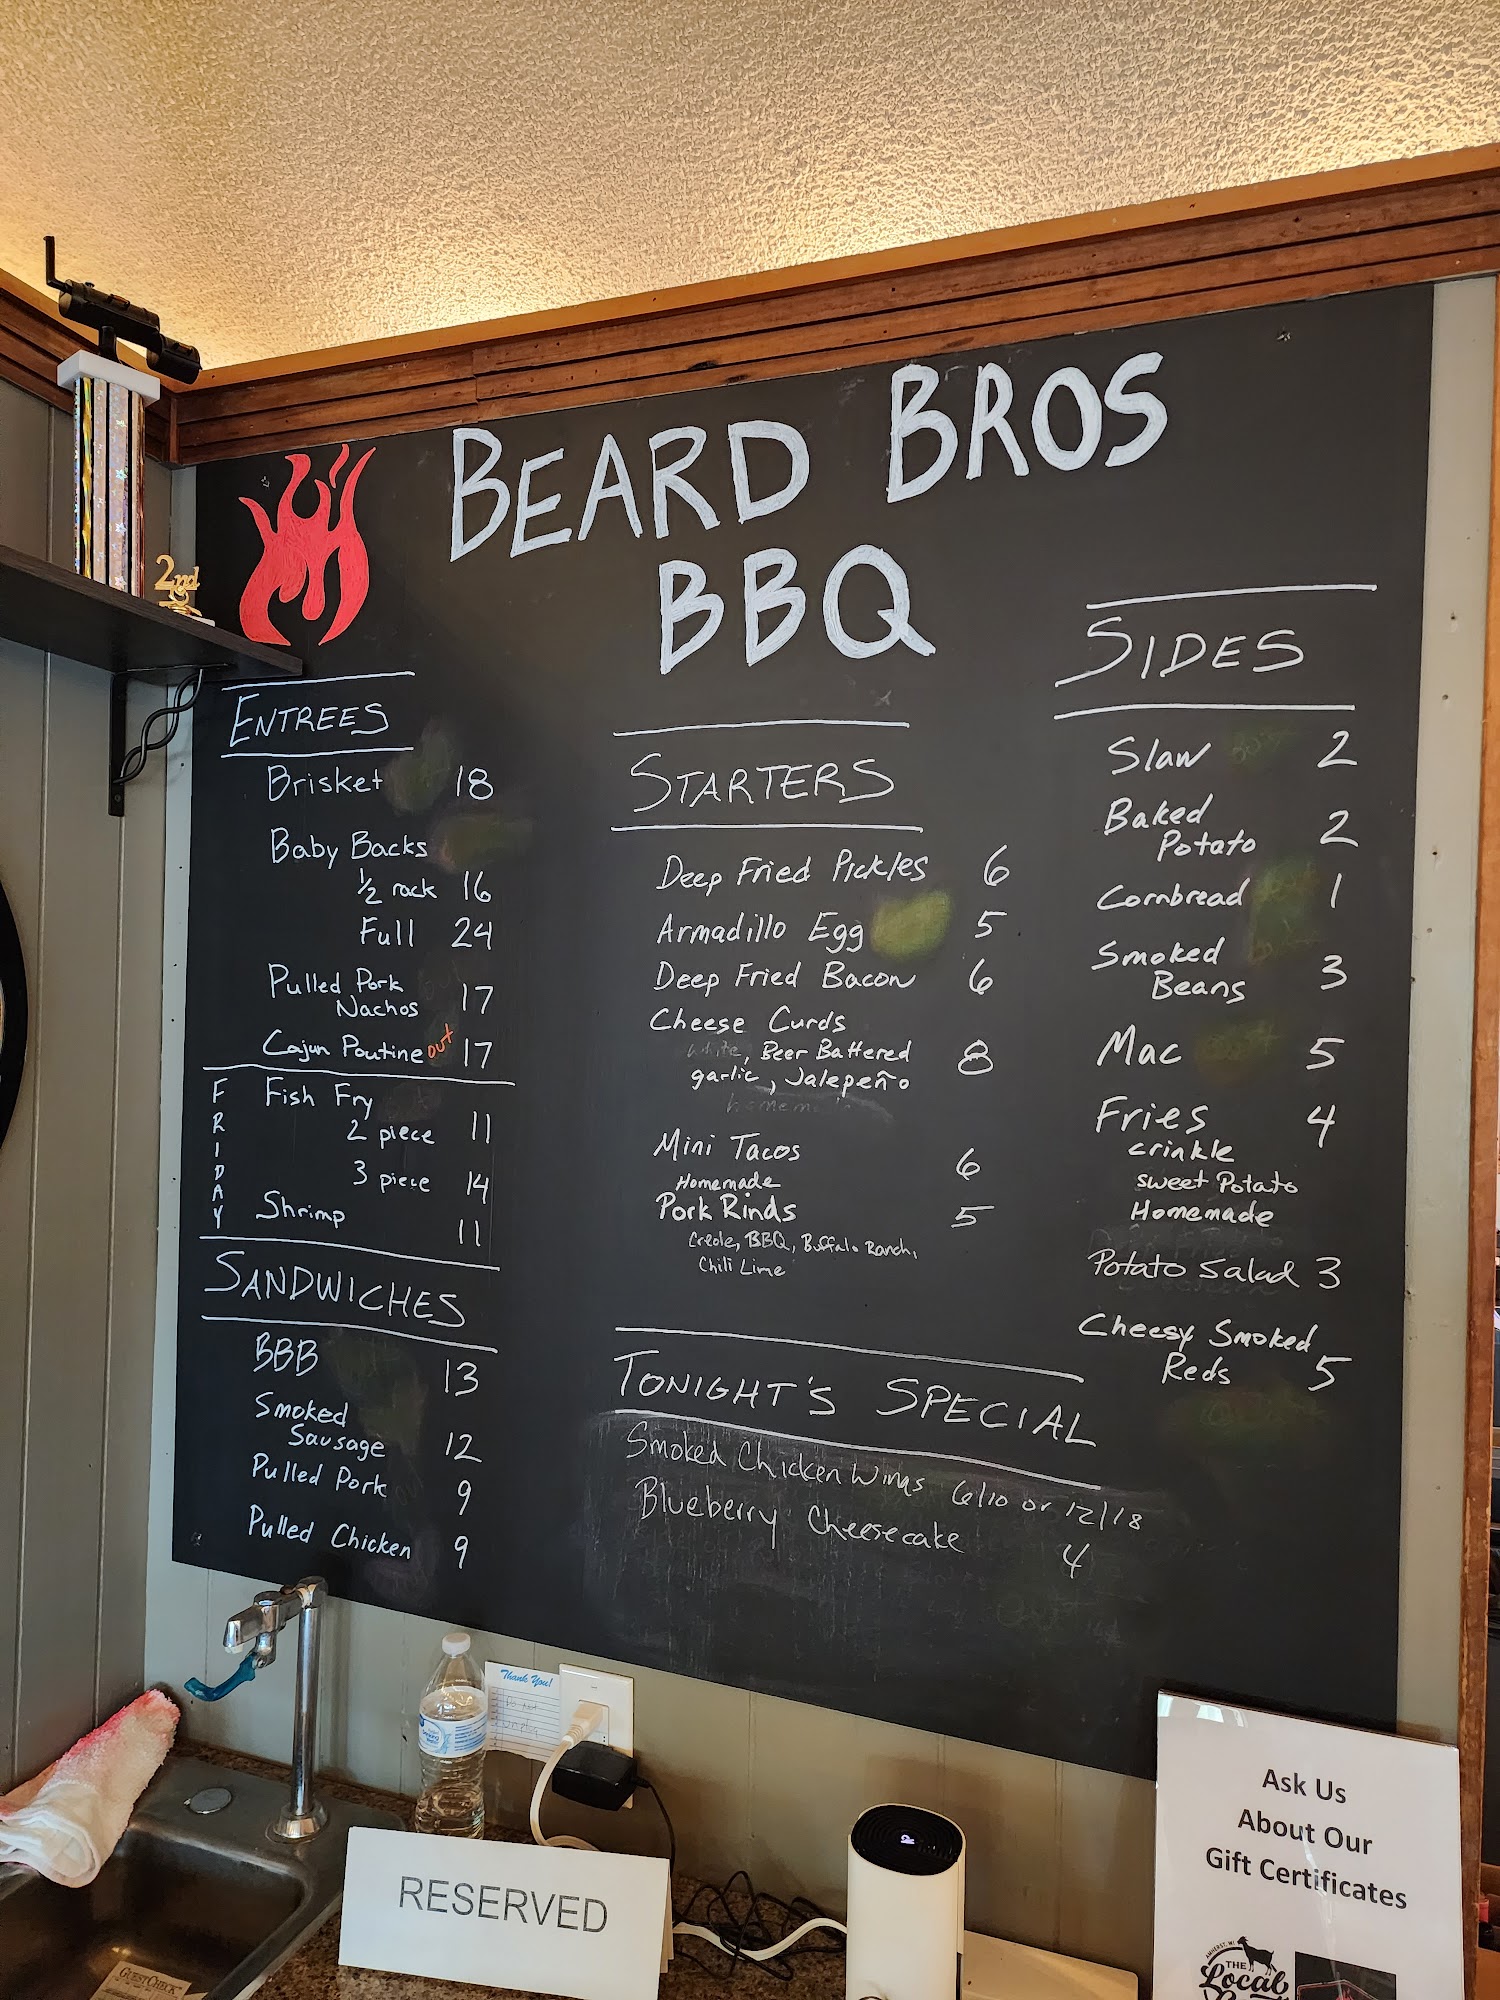 BEARD BROS
BBQ
2nd
ENTREES
Brisket 18
Baby Backs
1/2 rack 16
Full 24
Pulled Pork
Nachos 17
Cajun Poutine out 17
FRIDAY
Fish Fry
2 piece 11
3 piece 14
Shrimp
11
SANDWICHES
BBB 13
Smoked
Sausage 12
Pulled Pork 9
Pulled Chicken 9
STARTERS
Deep Fried Pickles 6
Armadillo Egg 5
Deep Fried Bacon 6
Cheese Curds
white, Beer Battered 8
garlic, Jalepeño
Mini Tacos 6
Homemade
Pork Rinds 5
Creole, BBQ, Buffalo Ranch,
Chili Lime
TONIGHT'S SPECIAL
Smoked Chicken Wings 6/10 or 12/18
Blueberry Cheesecake 4
SIDES
Slaw 2
Baked
Potato 2
Cornbread 1
Smoked
Beans 3
Mac 5
Fries 4
crinkle
sweet Potato
Homemade
Potato Salad 3
Cheesy Smoked
Reds 5
Thank You!
Do not
unplug
RESERVED
GUESTCHECK
Ask Us
About Our
Gift Certificates
AMHERST, WI
THE
Local